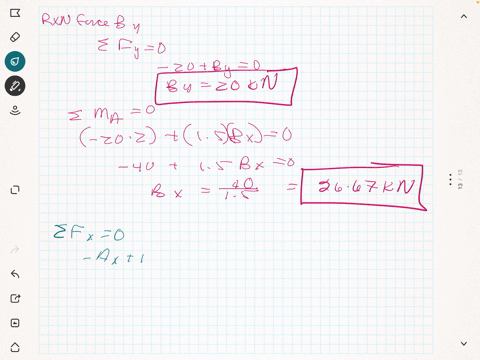 RXN Force By
ΣFy=0
-20+By=0
By=20 kN
Σ mA=0
(-20·2)+(1.5)(Bx)=0
-40 + 1.5 Bx=0
Bx = 40/1.5 = 26.67 kN
ΣFx=0
-Ax+1
13 / 13